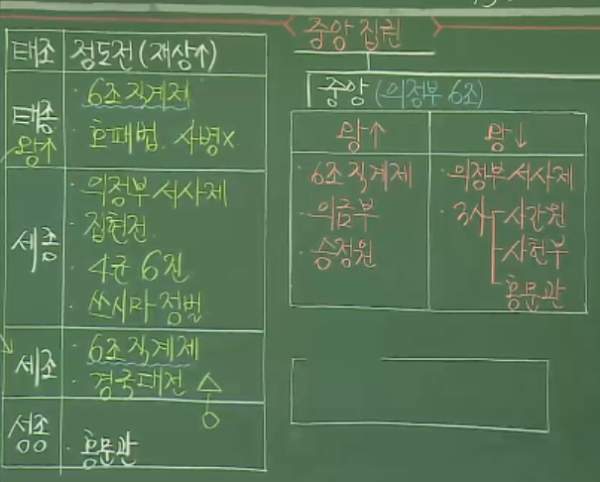 태조 정도전(재상↑)
태종 왕↑
· 6조 직계제
· 호패법. 사병×
세종
· 의정부 서사제
· 집현전
· 4군 6진
· 쓰시마 정벌
세조
· 6조 직계제
· 경국대전 수
성종
· 홍문관
중앙 집권
중앙 (의정부 6조)
왕↑ 왕↓
· 6조 직계제
· 의금부
· 승정원
· 의정부 서사제
· 3사 사간원
사헌부
홍문관